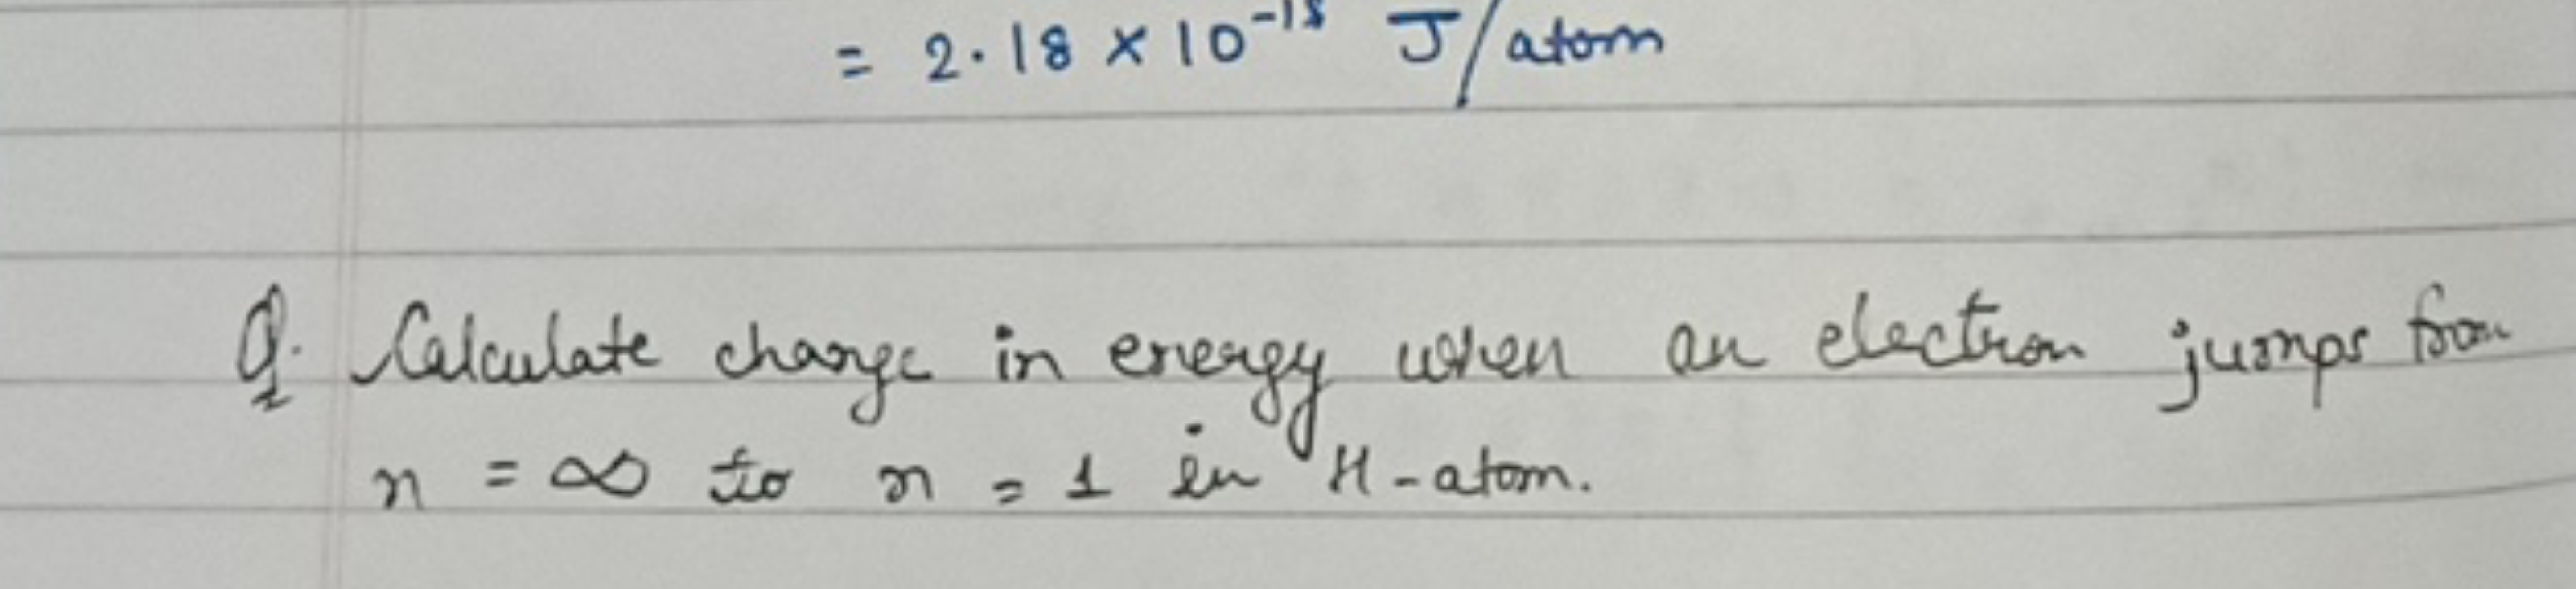 = 2.18 × 10⁻¹⁸ J/atom
Q. Calculate change in energy when an electron jumps from
n = ∞ to n = 1 in H-atom.